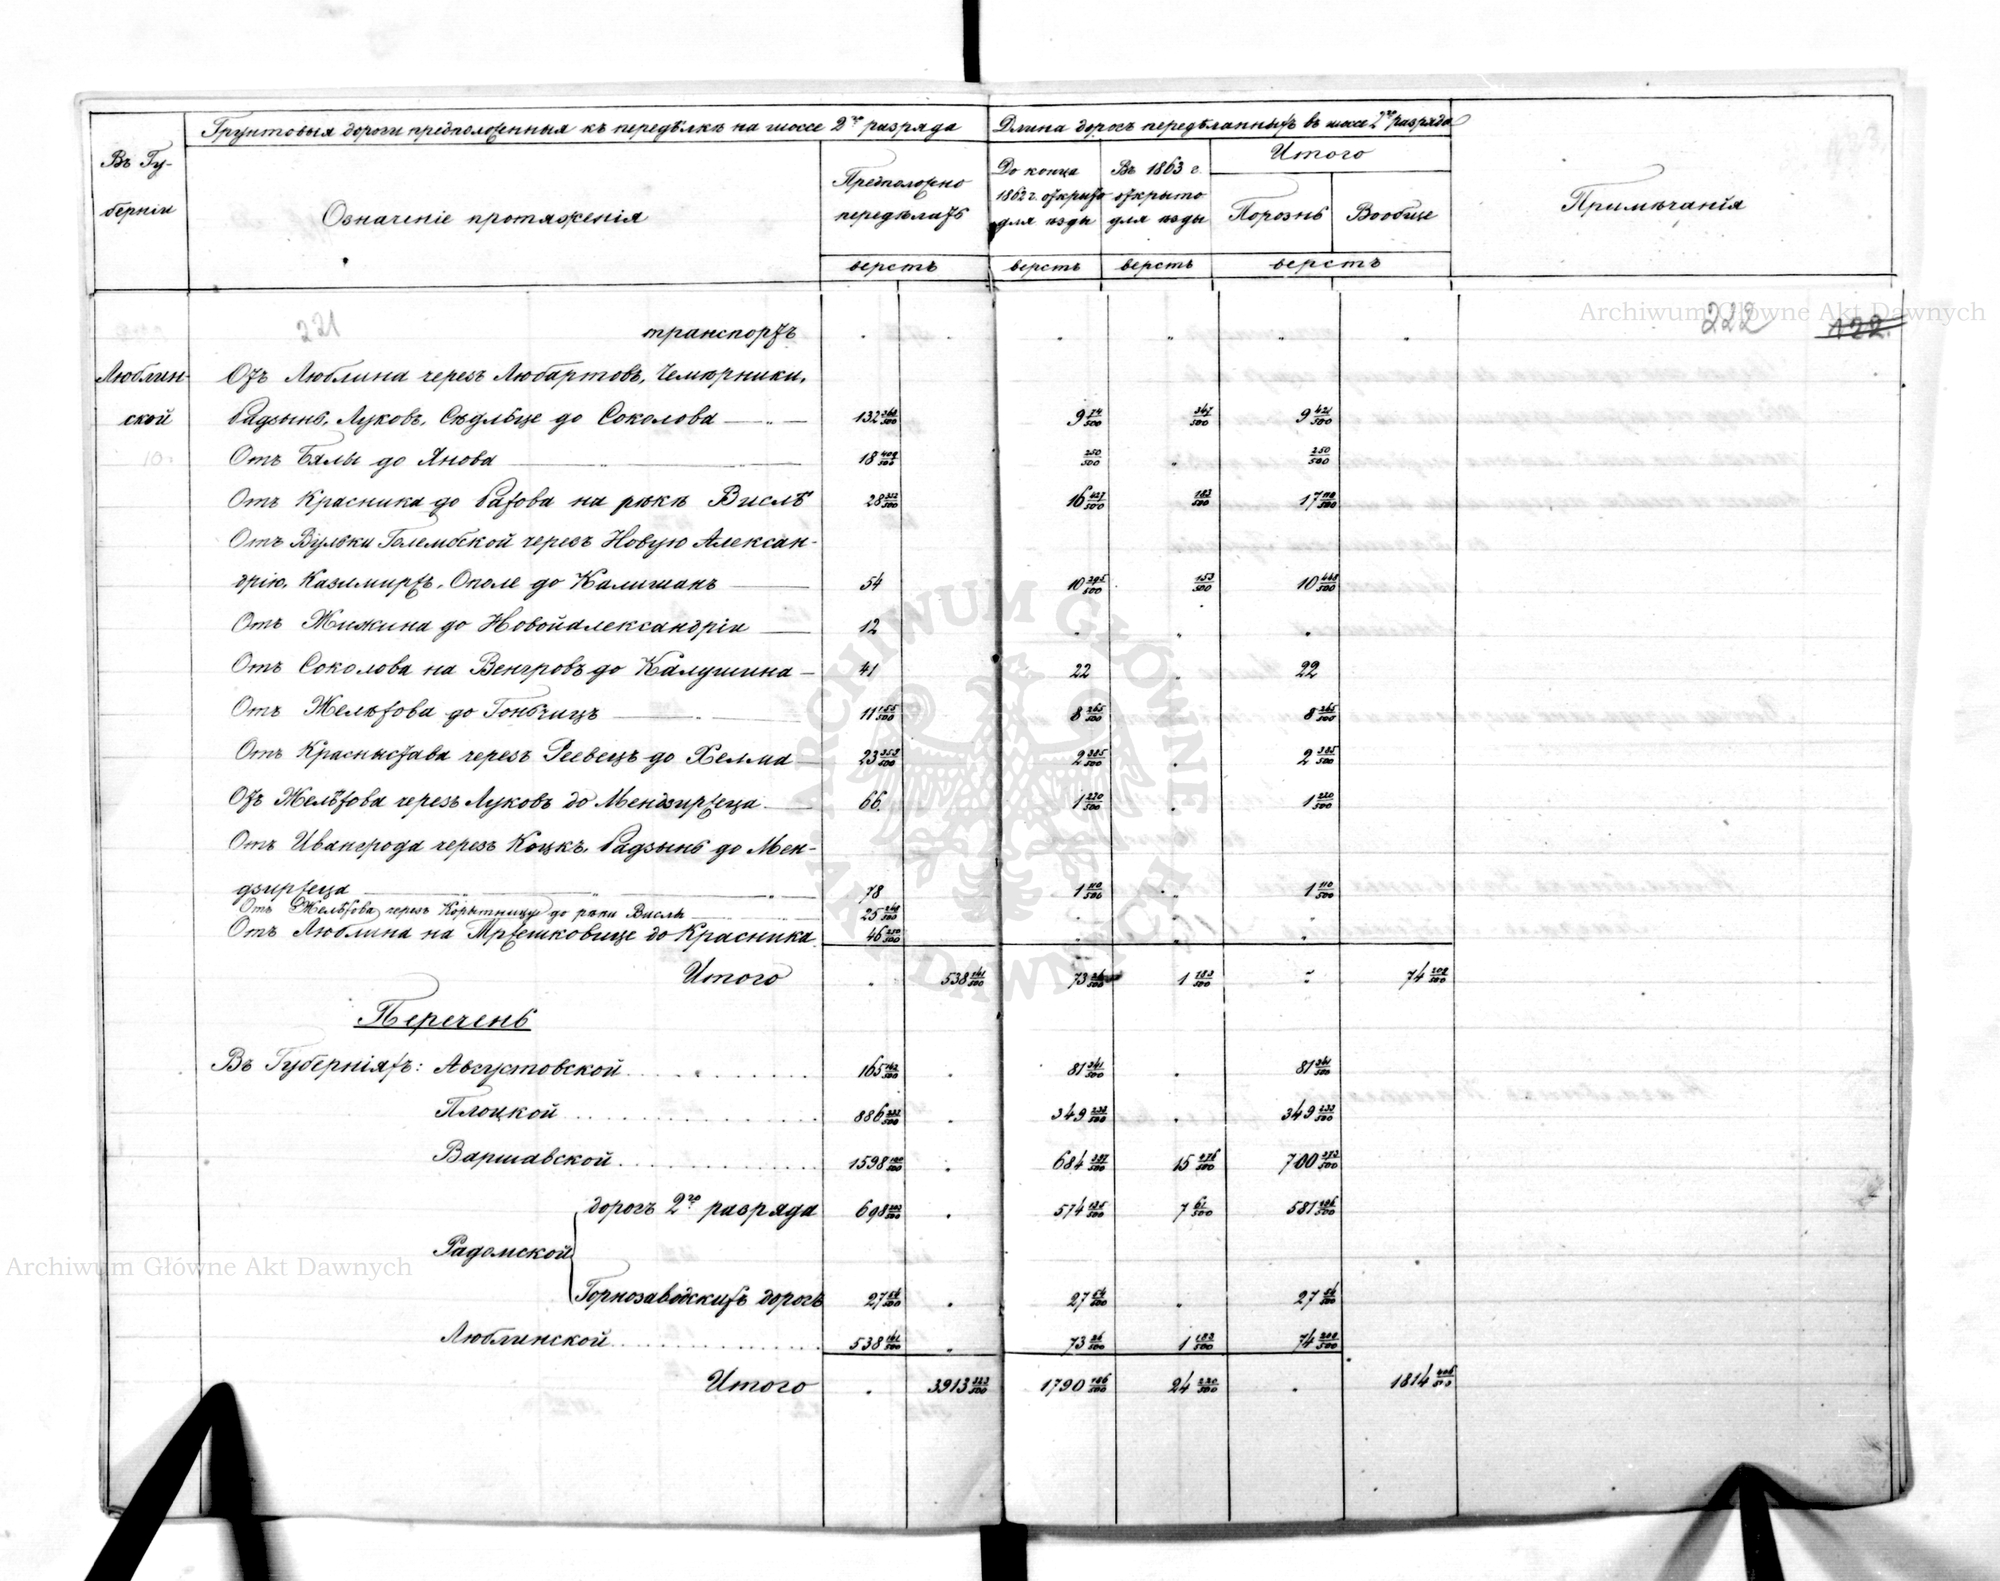 Въ Гу-
берніи
Грунтовыя дороги предположенныя къ передѣлкѣ на шоссе 2го разряда
Означеніе протяженія
Предположено
передѣлать
верстъ
Длина дорогъ передѣланныхъ въ шоссе 2го разряда
До конца
1862 г. открыто
для ѣзды
верстъ
Въ 1863 г.
открыто
для ѣзды
верстъ
Итого
Порознь Вообще
верстъ
Примѣчанія
Archiwum Główne Akt Dawnych
221 транспортъ 222 122.
Люблин- Отъ Люблина черезъ Любартовъ, Чемѣрники,
ской Радзынь, Луковъ, Сѣдльце до Соколова 132 9 74/500 347/500 9 421/500
Отъ Бялы до Янова 18 250/500 250/500
Отъ Красника до Рахова на рѣкѣ Вислѣ 28 16 427/500 183/500 17 110/500
Отъ Вульки Голембской черезъ Новую Алексан-
дрію, Казимиржъ, Ополе до Калишанъ 54 10 295/500 153/500 10 448/500
Отъ Жижина до Новойалександріи 12
Отъ Соколова на Венгровъ до Калушина 41 22 22
Отъ Желѣхова до Гончицъ 11 155/500 8 265/500 8 265/500
Отъ Красныстава черезъ Реевецъ до Хелма 23 2 385/500 2 385/500
Отъ Желѣхова черезъ Луковъ до Мендзиржеца 66 1 220/500 1 220/500
Отъ Ивангрода черезъ Коцкъ, Радзынь до Мен-
дзиржеца 78 1 110/500 1 110/500
Отъ Желѣхова черезъ Корытницу до рѣки Вислы 25
Отъ Люблина на Мржешковице до Красника 46 250/500
Итого 538 161/500 73 26/500 1 183/500 74 209/500
Перечень
Въ Губерніяхъ: Августовской 165 81 341/500 81 341/500
Плоцкой 886 349 233/500 349 233/500
Варшавской 1598 684 15 276/500 700
дорогъ 2го разряда 698 574 7 61/500 581
Радомской
Горнозаводскихъ дорогъ 27 54/500 27 54/500 27 54/500
Люблинской 538 161/500 73 26/500 1 183/500 74 209/500
Итого 3913 1790 24 1814
ARCHIWUM GŁÓWNE AKT DAWNYCH
Archiwum Główne Akt Dawnych